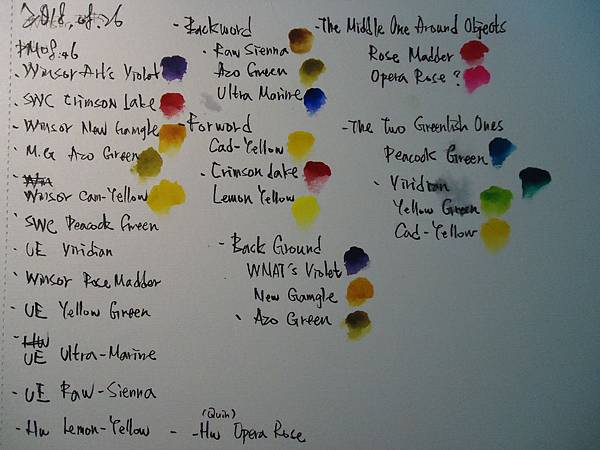 2018. 08. 26
PM 08:46
- Winsor Art's Violet
- SWC Crimson Lake
- Winsor New Gamgle
- M.G Azo Green
- Winsor Cam-Yellow
- SWC Peacock Green
- UE Viridian
- Winsor Rose Madder
- UE Yellow Green
- UE Ultra-Marine
- UE Raw-Sienna
- HW Lemon-Yellow - - HW (Quin) Opera Rose
- Backword
- Raw Sienna
Azo Green
Ultra Marine
- Forword
Cad-Yellow
- Crimson Lake
Lemon Yellow
- Back Ground
WNAT's Violet
New Gamgle
- Azo Green
- The Middle One Around Objects
Rose Madder
Opera Rose?
- The Two Greenlish Ones
Peacock Green
- Viridian
Yellow Green
Cad-Yellow